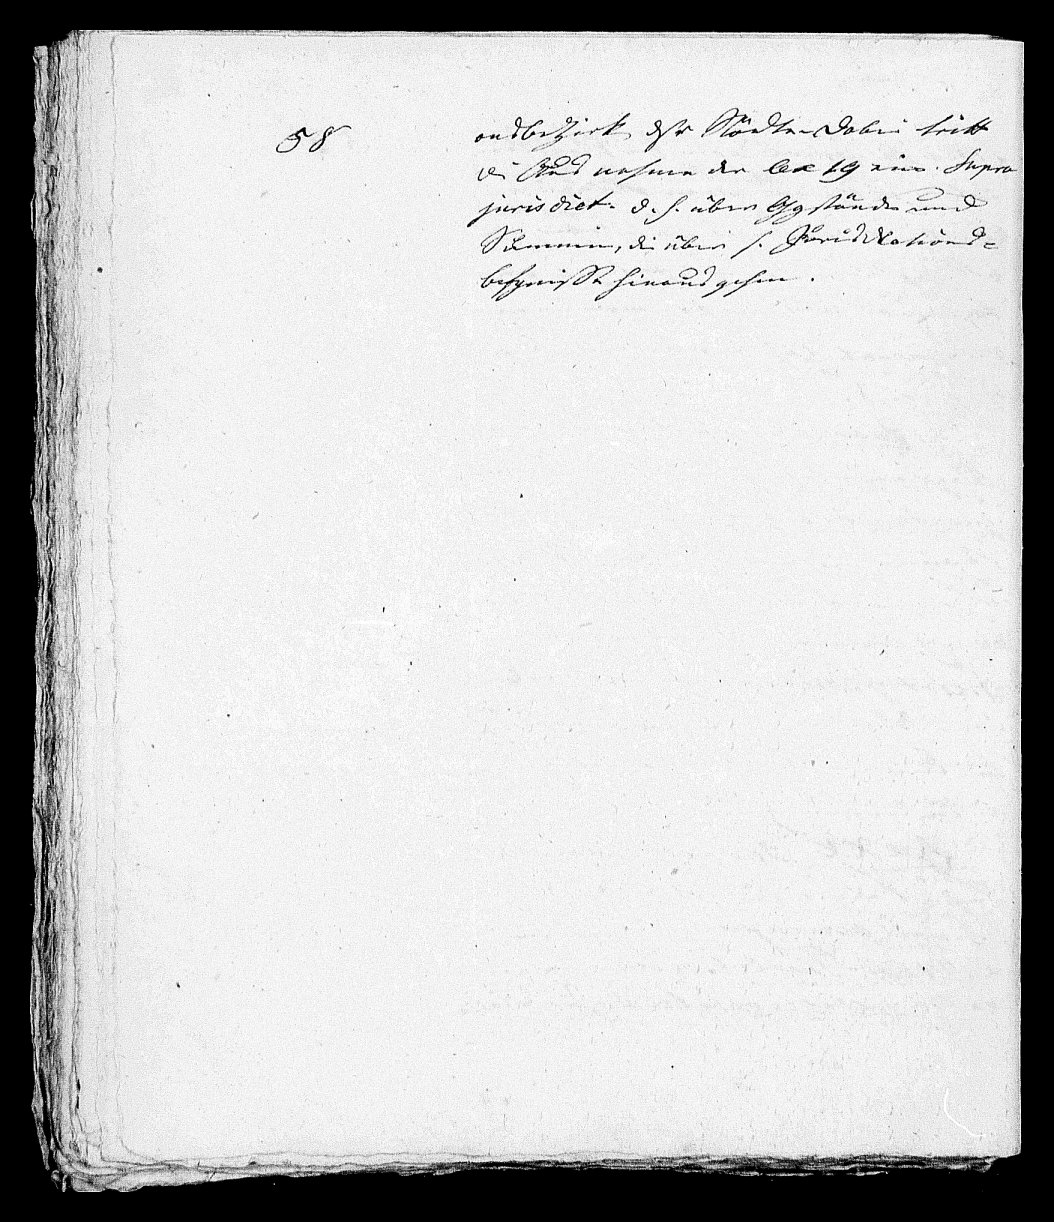 58
andbezirk der Städte. Dabei tritt
die Ausnahme der lex 19 ein. Supra
jurisdict. d. h. über Ggstände und
Summen, die über s. Jurisdiktions-
befugnisse hinausgehen.